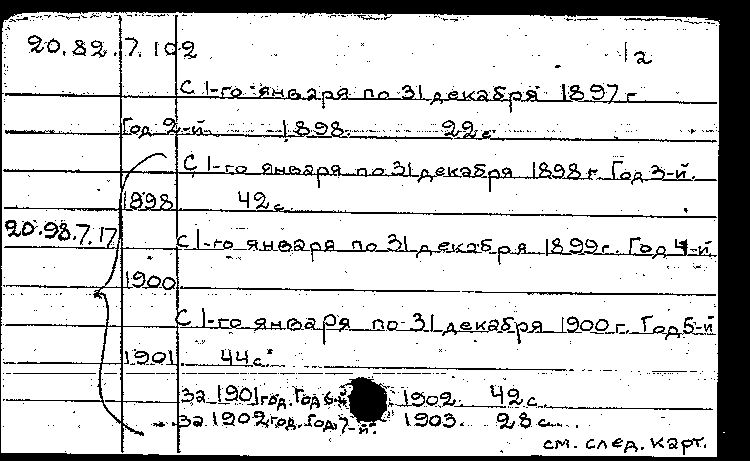 20.82.7.102 1a
С 1-го января по 31 декабря 1897 г
Год 2-й 1898 22 с.
С 1-го января по 31 декабря 1898 г. Год 3-й.
1898 42 с
20.98.7.17 С 1-го января по 31 декабря 1899 г. Год 4-й
1900
С 1-го января по 31 декабря 1900 г. Год 5-й
1901 44 с
За 1901 год. Год 6-й 1902. 42 с
За 1902 год. Год 7-й. 1903. 28 с
см. след. карт.